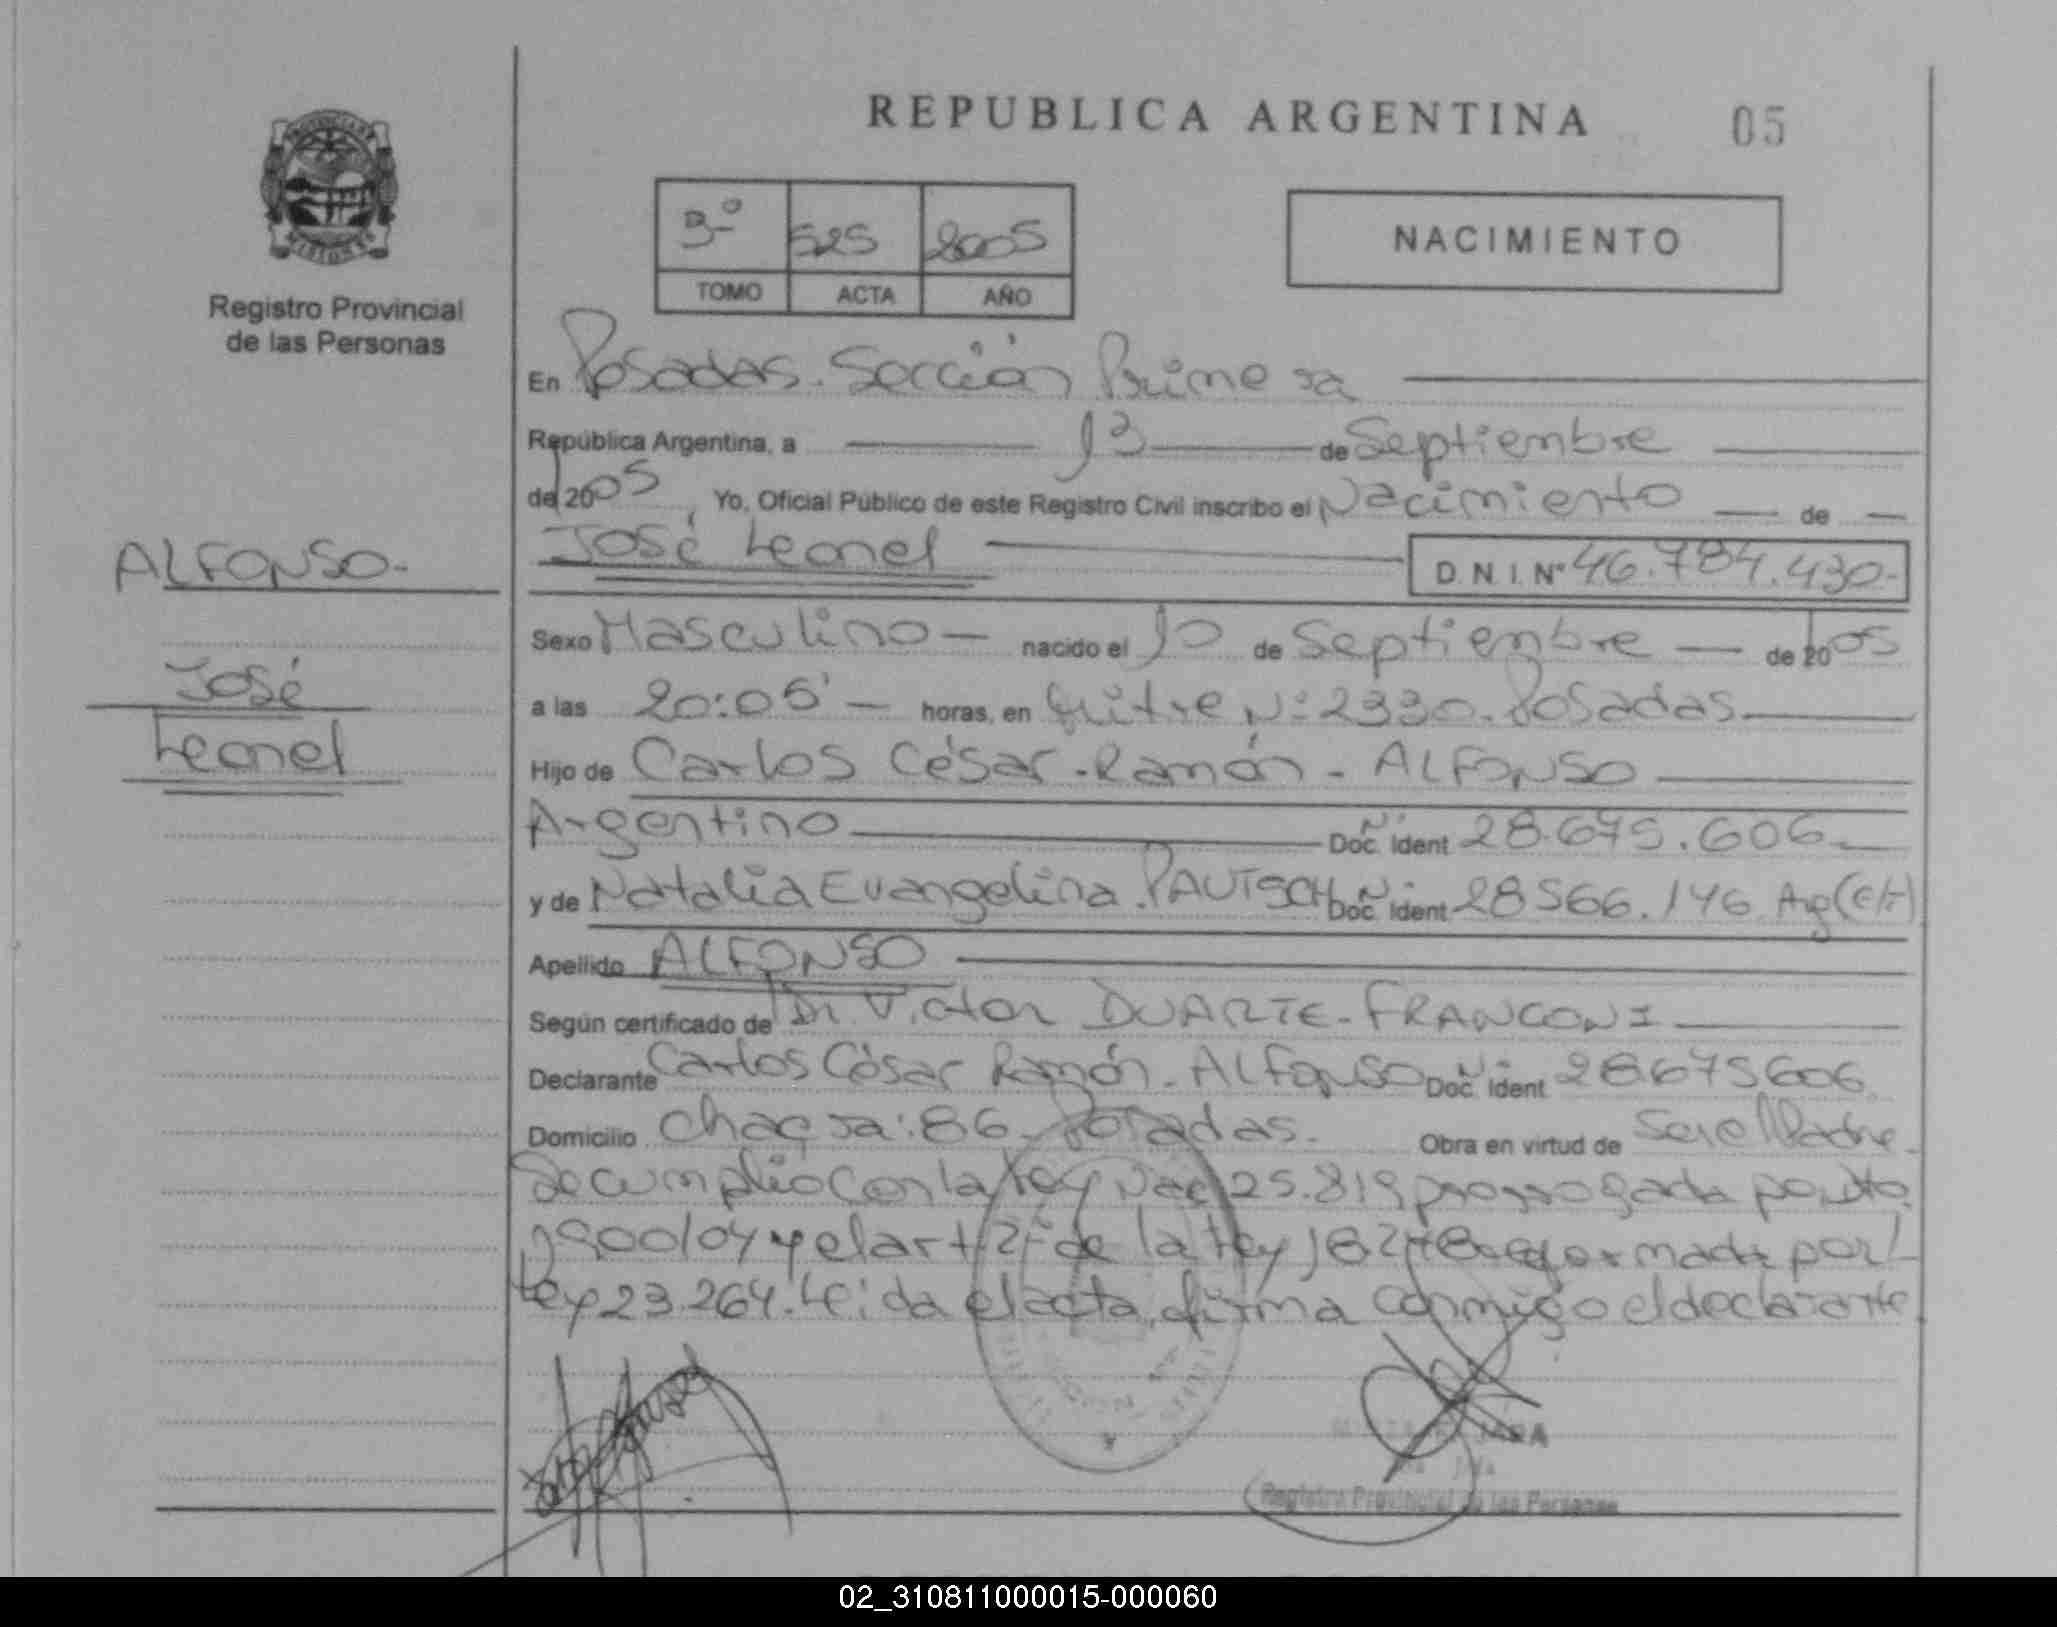 REPUBLICA ARGENTINA 05
PROVINCIA DE
MISIONES
Registro Provincial
de las Personas
3º 525 2005
TOMO ACTA AÑO
NACIMIENTO
En Posadas. Sección Primera
República Argentina, a 13 de Septiembre
de 2005, Yo, Oficial Público de este Registro Civil inscribo el Nacimiento de
ALFONSO.
José Leonel D.N.I. Nº 46.784.430.
Sexo Masculino nacido el 10 de Septiembre de 2005
José
Leonel
a las 20:05' horas, en Nº 2330. Posadas
Hijo de Carlos César Ramón - ALFONSO
Argentino Nº Doc. Ident 28.675.606
y de Natalia Evangelina. PAUTSCH Nº Doc. Ident 28566.146 Arg
Apellido ALFONSO
Según certificado de Dr. Victor DUARTE - FRANCONI
Declarante Carlos César Ramón - ALFONSO Nº Doc. Ident 28675606
Domicilio Chacra: 86 Posadas. Obra en virtud de Ser el Padre
Se cumplió con la Ley Nac 25.819 prorrogada por Dto
1900/04 y el art 2º de la Ley 18248 reformada por
Ley 23.264. Leida el acta, firma conmigo el declarante
JARA
Registro Provincial de las Personas
02_310811000015-000060